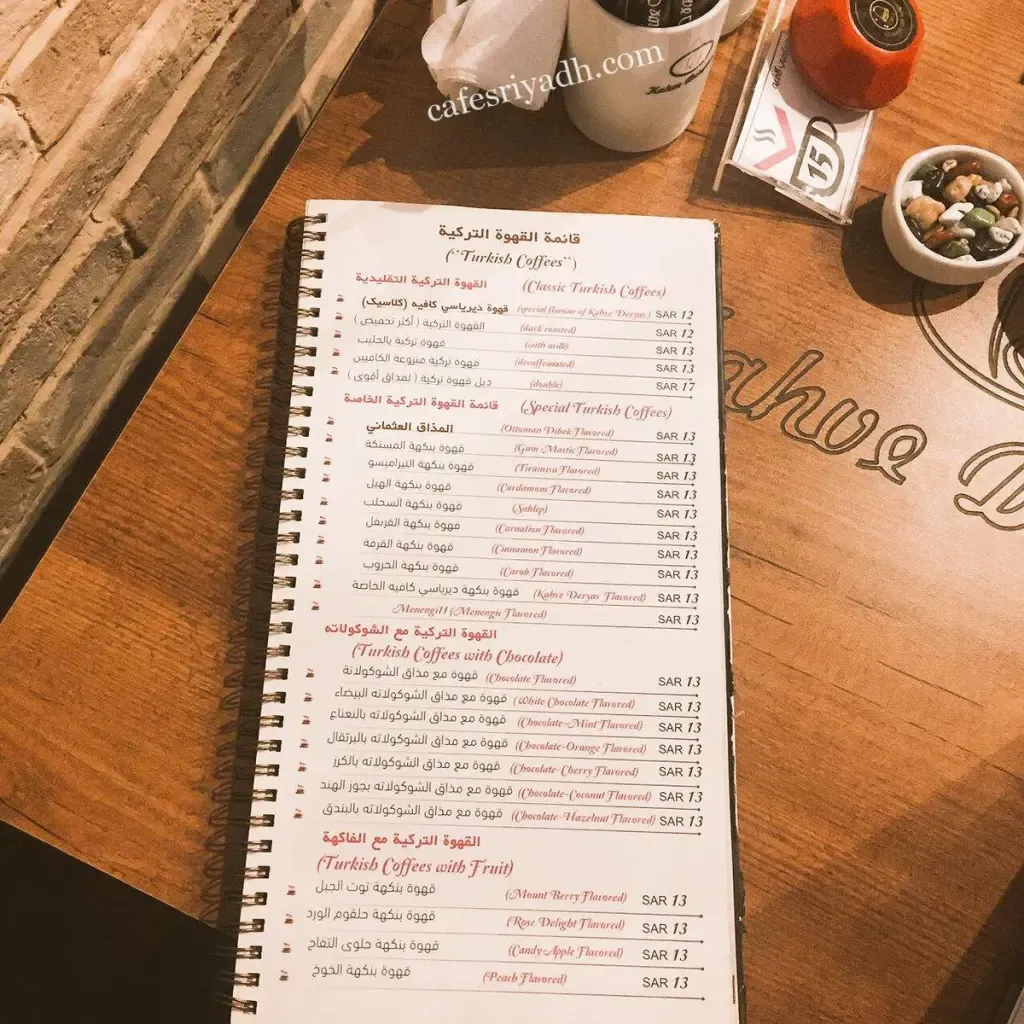 cafesriyadh.com
15
قائمة القهوة التركية
(``Turkish Coffees``)
القهوة التركية التقليدية (Classic Turkish Coffees)
قهوة ديرياسي كافيه (كلاسيك) (special flavour of Kahve Deryas) SAR 12
القهوة التركية ( أكثر تحميص ) (dark roasted) SAR 12
قهوة تركية بالحليب (with milk) SAR 13
قهوة تركية منزوعة الكافيين (decaffeinated) SAR 13
دبل قهوة تركية ( لمذاق أقوى ) (double) SAR 17
قائمة القهوة التركية الخاصة (Special Turkish Coffees)
المذاق العثماني (Ottoman Dibek Flavored) SAR 13
قهوة بنكهة المستكة (Gum Mastic Flavored) SAR 13
قهوة بنكهة التيراميسو (Tiramisu Flavored) SAR 13
قهوة بنكهة الهيل (Cardamom Flavored) SAR 13
قهوة بنكهة السحلب (Sahlep) SAR 13
قهوة بنكهة القرنفل (Carnation Flavored) SAR 13
قهوة بنكهة القرفة (Cinnamon Flavored) SAR 13
قهوة بنكهة الخروب (Carob Flavored) SAR 13
قهوة بنكهة ديرياسي كافيه الخاصة (Kahve Deryas Flavored) SAR 13
(Menengic Flavored) SAR 13
القهوة التركية مع الشوكولاته
(Turkish Coffees with Chocolate)
قهوة مع مذاق الشوكولاتة (Chocolate Flavored) SAR 13
قهوة مع مذاق الشوكولاته البيضاء (White Chocolate Flavored) SAR 13
قهوة مع مذاق الشوكولاته بالنعناع (Chocolate-Mint Flavored) SAR 13
قهوة مع مذاق الشوكولاته بالبرتقال (Chocolate-Orange Flavored) SAR 13
قهوة مع مذاق الشوكولاته بالكرز (Chocolate-Cherry Flavored) SAR 13
قهوة مع مذاق الشوكولاته بجوز الهند (Chocolate-Coconut Flavored) SAR 13
قهوة مع مذاق الشوكولاته بالبندق (Chocolate-Hazelnut Flavored) SAR 13
القهوة التركية مع الفاكهة
(Turkish Coffees with Fruit)
قهوة بنكهة توت الجبل (Mount Berry Flavored) SAR 13
قهوة بنكهة حلقوم الورد (Rose Delight Flavored) SAR 13
قهوة بنكهة حلوى التفاح (Candy Apple Flavored) SAR 13
قهوة بنكهة الخوخ (Peach Flavored) SAR 13
ahve D